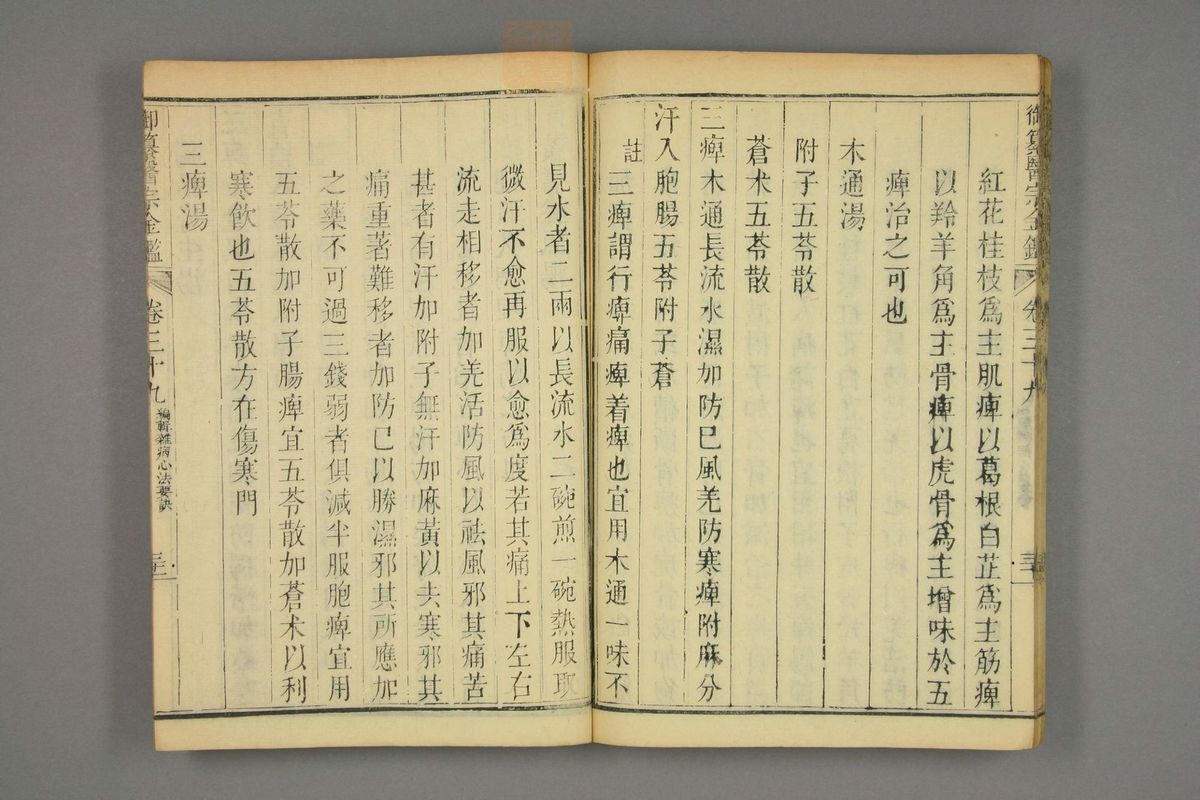 御纂醫宗金鑑 卷三十九
紅花桂枝爲主肌痺以葛根白芷爲主筋痺
以羚羊角爲主骨痺以虎骨爲主增味於五
痺治之可也
木通湯
附子五苓散
蒼术五苓散
三痺木通長流水濕加防巳風羌防寒痺附麻分
汗入胞腸五苓附子蒼
註三痺謂行痺痛痺着痺也宜用木通一味不
見水者二兩以長流水二碗煎一碗熱服取
微汗不愈再服以愈爲度若其痛上下左右
流走相移者加羌活防風以祛風邪其痛苦
甚者有汗加附子無汗加麻黃以去寒邪其
痛重著難移者加防巳以勝濕邪其所應加
之藥不可過三錢弱者俱減半服胞痺宜用
五苓散加附子腸痺宜五苓散加蒼术以利
寒飲也五苓散方在傷寒門
三痺湯
御纂醫宗金鑑 卷三十九 編輯雜病心法要訣